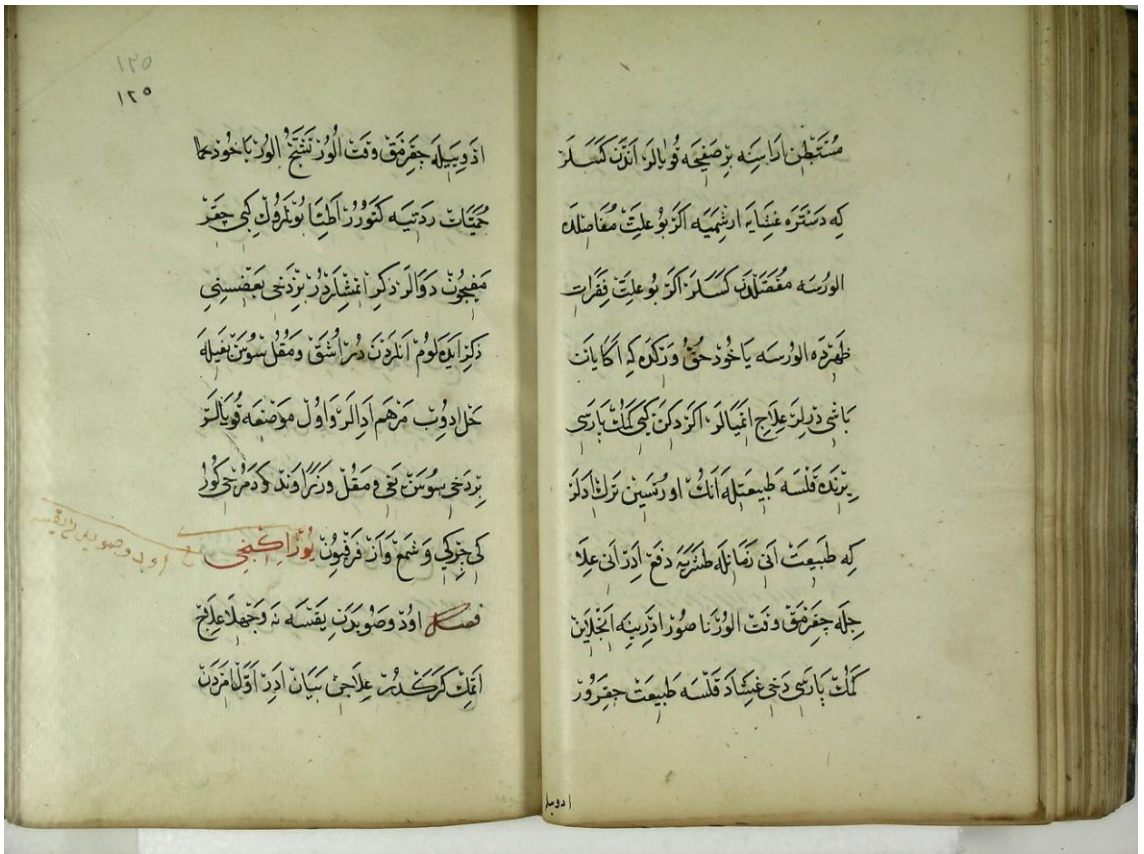 مُسْتَبْطِن اَرَاسِنَه بِرْ صَفِيحَه قُويَالَرْ اَنْدَنْ كَسَلَرْ
كِه دَسْتَرَه غِشَايَه ارِشْمَيَه اَكَرْ بُو عِلَّتْ مَفَاصِلْدَه
الورْسَه مَفْصَلْدَنْ كَسَلَرْ اَكَرْ بُو عِلَّتْ فِقَرَات
ظَهْرْدَه الورْسَه يَاخُودْ حُقُّ وَرَكْدَه كِه اَكَا يَانْت
بَاشِى دَرْلَرْ عِلَاج اتْمَيَالَرْ اَكَرْ دِكَنْ كِبِى كَمُكْ پَارَسِى
يِرِنْدَه قَلْسَه طَبِيعَتْلَه اَنُكْ اورْتَسِينْ تَرْك اِدَلَرْ
كِه طَبِيعَتْ اَنِى زَمَانِلَه طَشْرَيَه دَفْع اِدَرْ اَنِى عِلَا
جِلَه چِقَرْمَقْ وَقْت الورْ نَاصُورْ ادَرِينَه انْجِلَايِنْ
كَمُكْ پَارَسِى دَخِى غِشَادَ قَلْسَه طَبِيعَتْ چِقَرُورْ
ادويه
١٢٥
١٢٥
اَدْوِيَيلَه چِقَرْمَقْ وَقْت الُورْ تَشَنُّجْ الورْ يَاخُودْ حما
حُمَّيَات رَدِيَّه كَتُورُرْ اَطِبَّا بُونْلَرُوكْ كِبِى چِقَرْ
مَغِيجُونْ دَوَالَرْ ذِكْر اتْمِشْلَرْدُرْ بِزْ دَخِى بَعْضِسِنِى
ذِكْر ايَدَه لُومْ اَنْلَرْدَنْ دُرْ اُشَقْ وَمُقْل سُوسَنْ يَغِيلَه
حَلّ ادُوبْ مَرْهَم اَدَالَرْ وَاُولْ مَوْضِعَه قُويَالَرْ
بِرْ دَخِى سُوسَنْ يَغِى وَمُقْل وَزَرَاوَنْد وَدَمُرْجِى كُورُ
كِى چِرْكِى وَشَمْع وَاَزْ فَرْفِيُونْ يُوزْ اِكِنْجِى
فصل اوُدْ وَصُويِدَنْ يَقْسَه نَه وَجْهلَا عِلَاج
اتْمَكْ كَرَكْدُرْ عِلَاجِنْ بَيَانْ اِدَرْ اَوَّلْ اَمْرَدَنْ